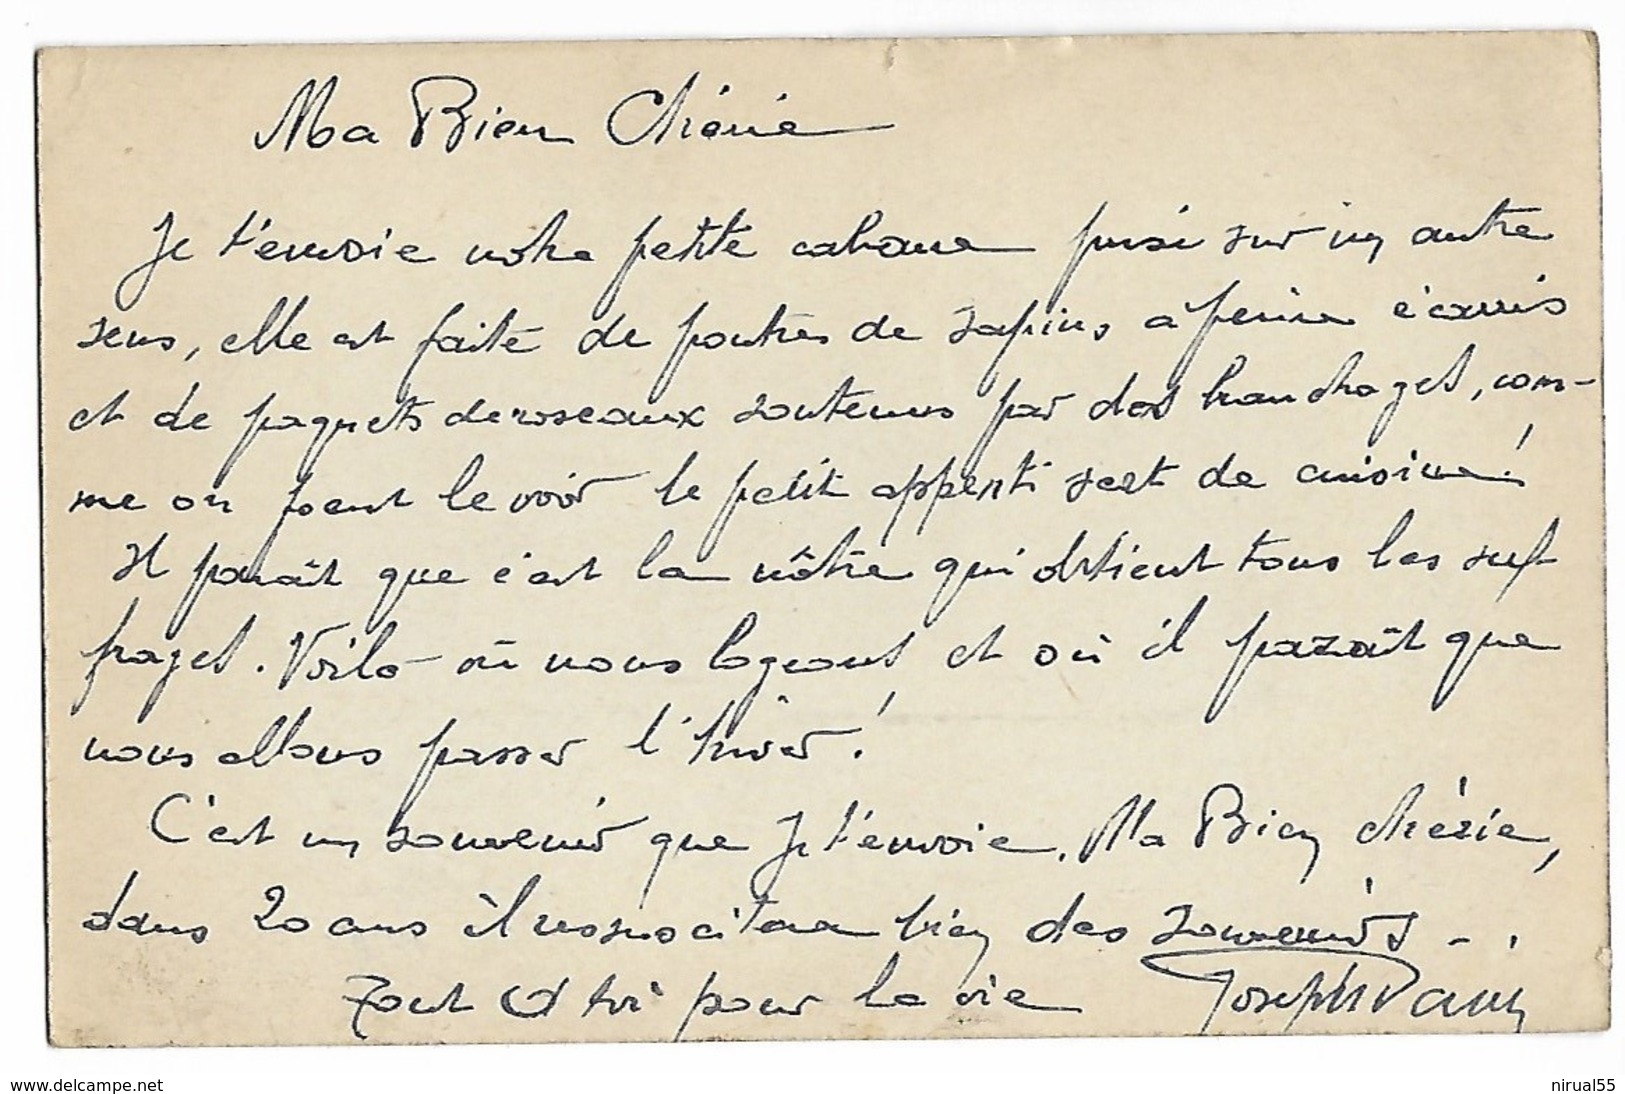 Ma Bien Chérie
Je t'envoie notre petite cabane prise sur un autre
sens, elle est faite de poutres de sapins a peine écarris
et de paquets de roseaux soutenus par des branchages, com-
me on peut le voir le petit appenti sert de cuisine!
Il paraît que c'est la nôtre qui obtient tous les suf
frages. Voilà où nous logeons et où il paraît que
nous allons passer l'hiver!
C'est un souvenir que je t'envoie. Ma Bien chérie,
dans 20 ans il ressuscitera bien des souvenirs - .
Tout à toi pour la vie Joseph
www.delcampe.net
nirual55